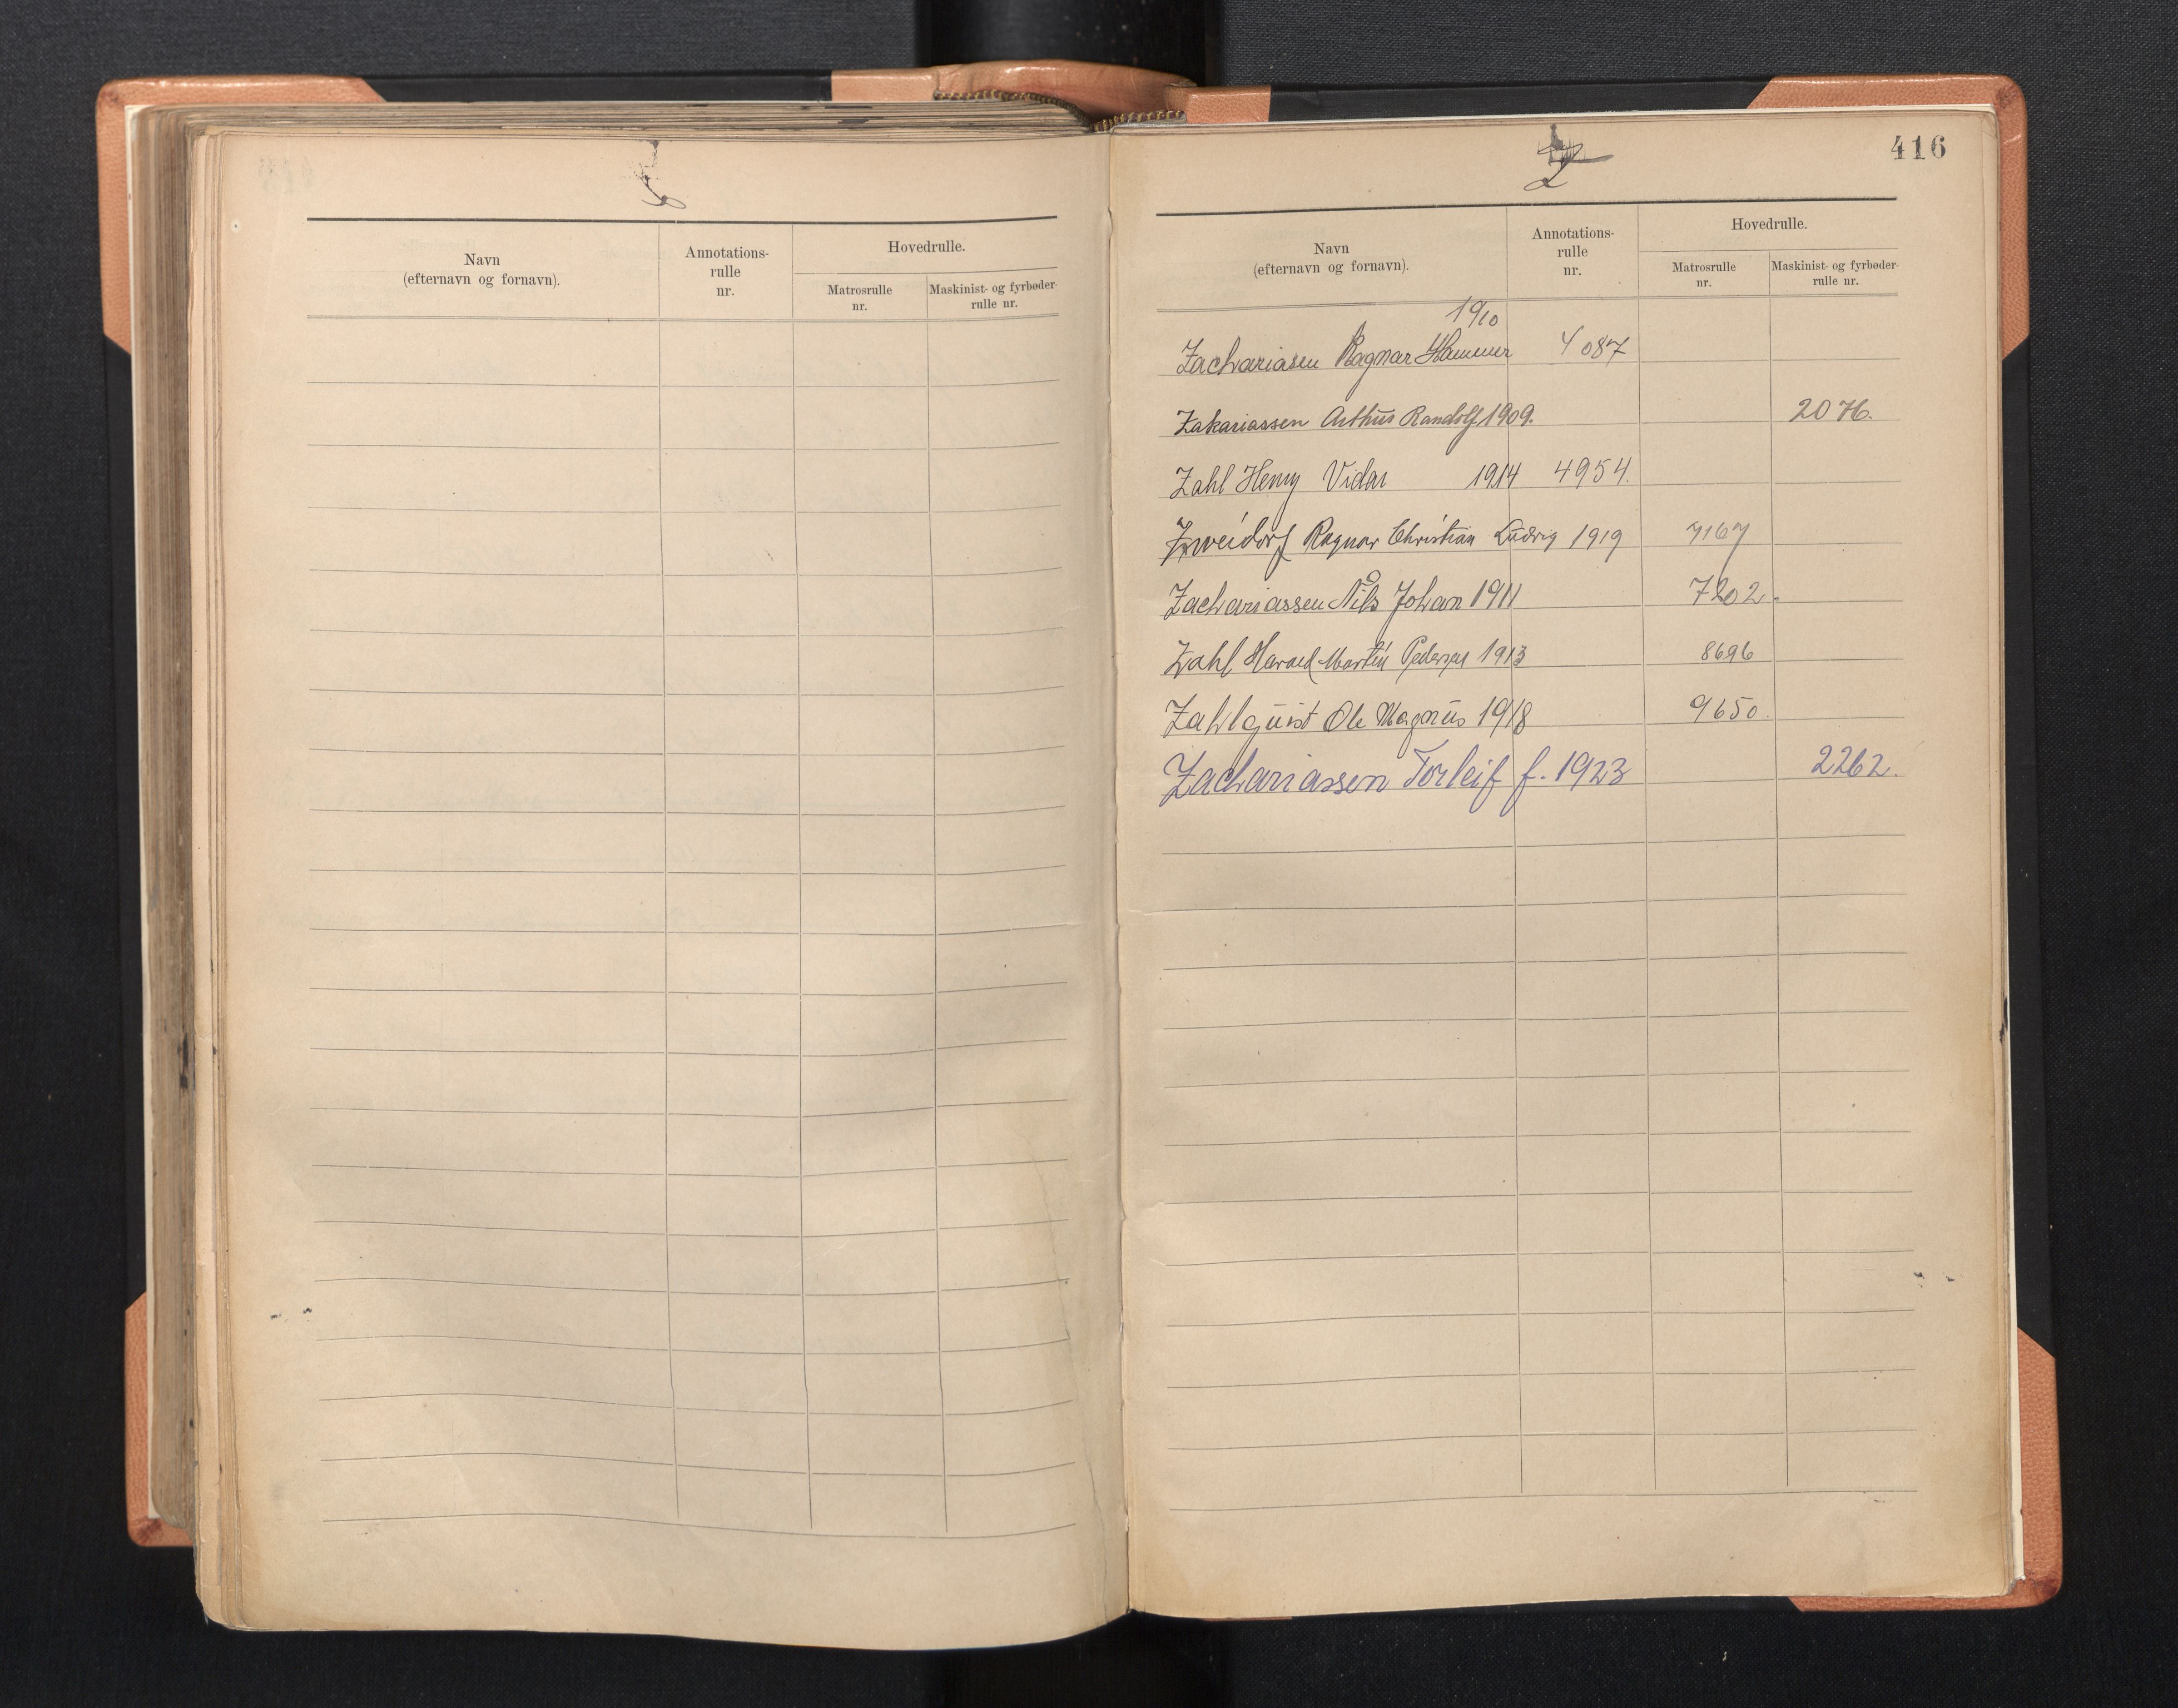 Navn
(efternavn og fornavn).
Annotations-
rulle
nr.
Hovedrulle.
Matrosrulle
nr.
Maskinist- og fyrbøder-
rulle nr.
416
Z
Navn
(efternavn og fornavn).
Annotations-
rulle
nr.
Hovedrulle.
Matrosrulle
nr.
Maskinist- og fyrbøder-
rulle nr.
1910
Zachariasen Ragnar Hammer 4087
Zakariassen Arthur Randolf 1909. 2076.
Zahl Henry Vidar 1914 4954.
Zweidorf Ragnar Christian Ludvig 1919 7167
Zachariassen Nils Johan 1911 7202.
Zahl Harael Martin Pedersen 1913 8696
Zahlquist Ole Magnus 1918 9650.
Zachariassen Torleif f. 1923 2262.